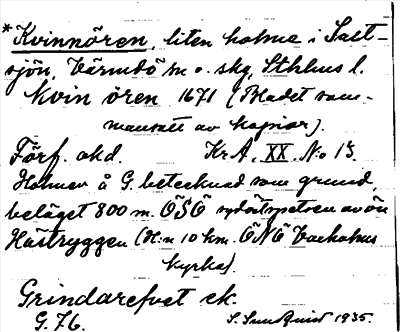 *Kvinnören, liten holme i Salt-
sjön, Värmdö sn o. skg, Sthlms l.
Kvin ören 1671 (Bladet sam-
mansatt av kopior).
Förf. okd. Kr.A. XX. No 13.
Holmen å G. betecknad som grund,
beläget 800 m. ÖSÖ sydöstspetsen av ön
Hästryggen (H:n 10 km. ÖNÖ
kyrka).
Grindarefvet ek.
G. 76. S. Sundquist 1935.